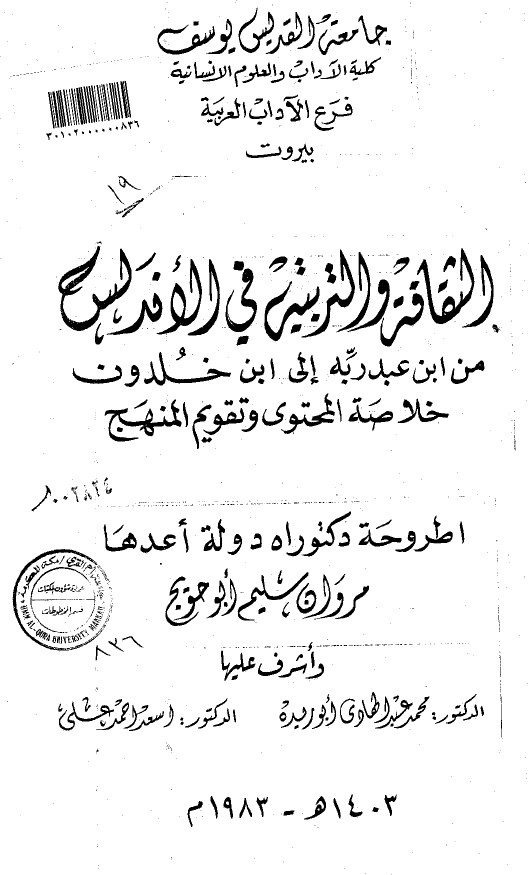 جامعة القديس يوسف
كلية الآداب والعلوم الإنسانية
فرع الآداب العربية
بيروت
٣٠١٠٢٠٠٠٠٠٠٨٣٦
١٩
الثقافة والتربية في الأندلس
من ابن عبد ربه إلى ابن خلدون
خلاصة المحتوى وتقويم المنهج
٠٠٢٨٢٤
اطروحة دكتوراه دولة أعدها
مروان سليم أبو حويج
جامعة أم القرى / مكة المكرمة
عمادة شؤون المكتبات
قسم المخطوطات
UMM AL-QURA UNIVERSITY MAKKAH
٨٣٦
وأشرف عليها
الدكتور: محمد عبد الهادي أبو ريده
الدكتور: اسعد احمد علي
١٤٠٣هـ - ١٩٨٣م